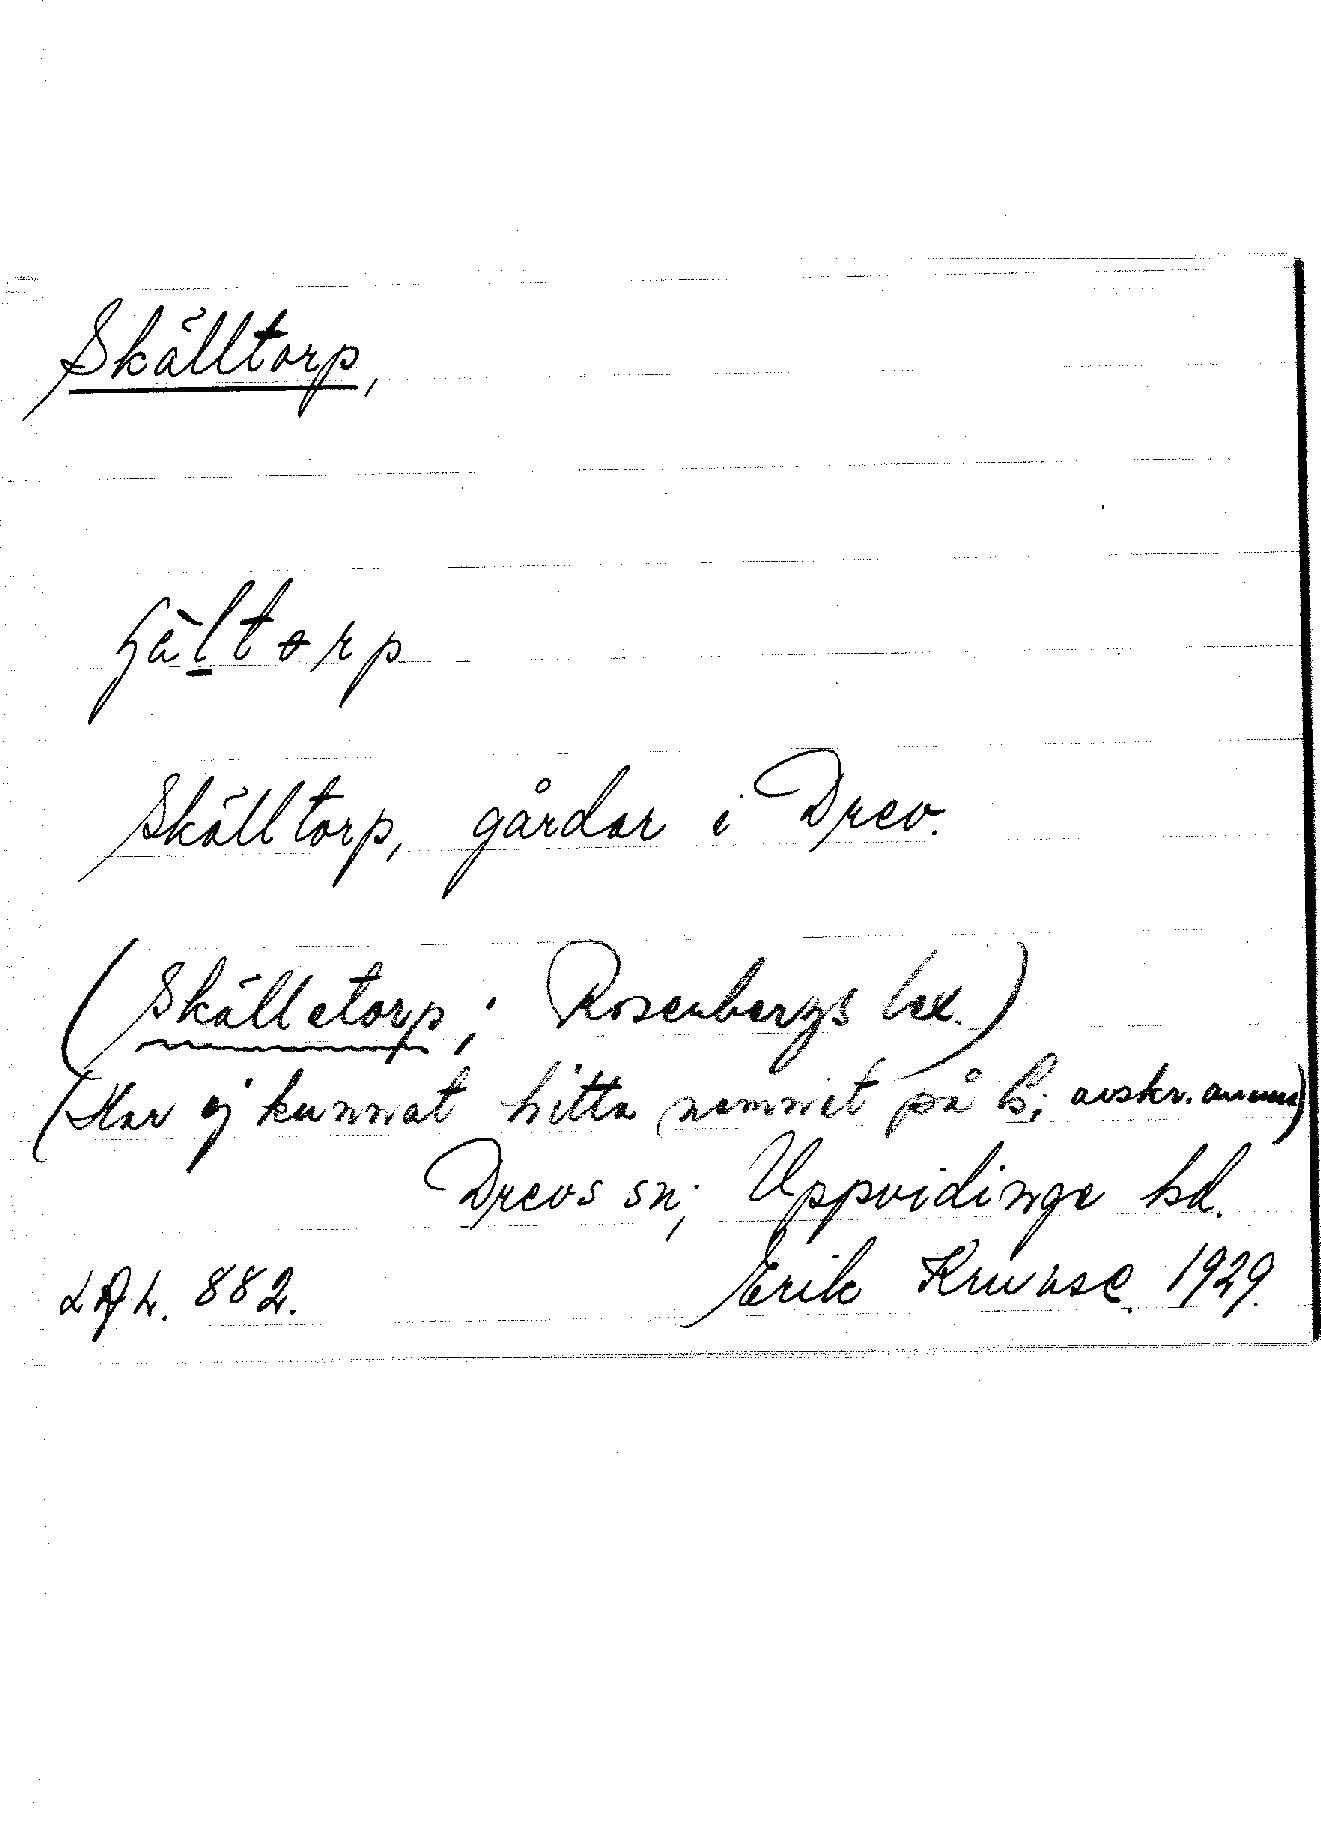 Skälltorp,
Skälltorp, gårdar i Drev.
(Skälletorp; Rosenbergs lex.)
(Har ej kunnat hitta namnet på k; avskr. anm.)
Drevs sn; Uppvidinge hd.
LAL. 882. Erik Kruuse 1929.